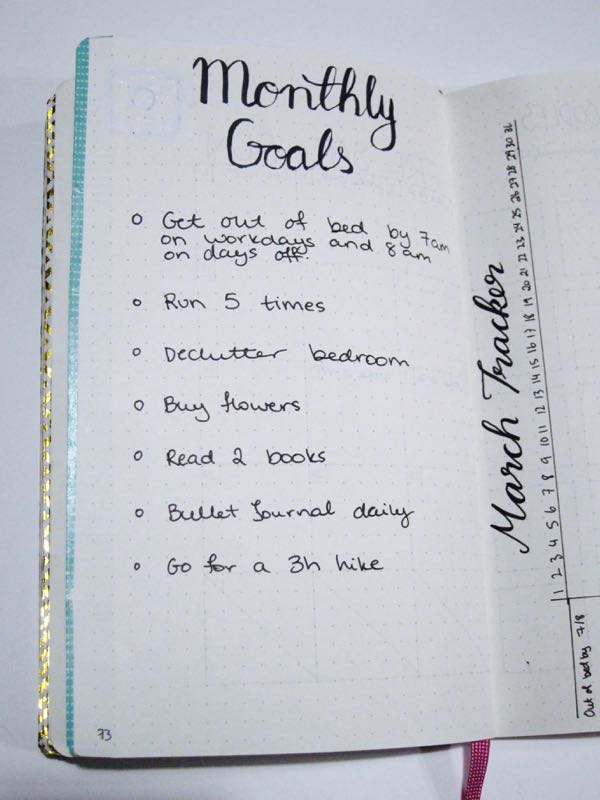 Monthly
Goals
Get out of bed by 7am
on workdays and 8am
on days off.
Run 5 times
Declutter bedroom
Buy flowers
Read 2 books
Bullet Journal daily
Go for a 3h hike
73
March Tracker
1 2 3 4 5 6 7 8 9 10 11 12 13 14 15 16 17 18 19 20 21 22 23 24 25 26 27 28 29 30 31
Out of bed by 7/8